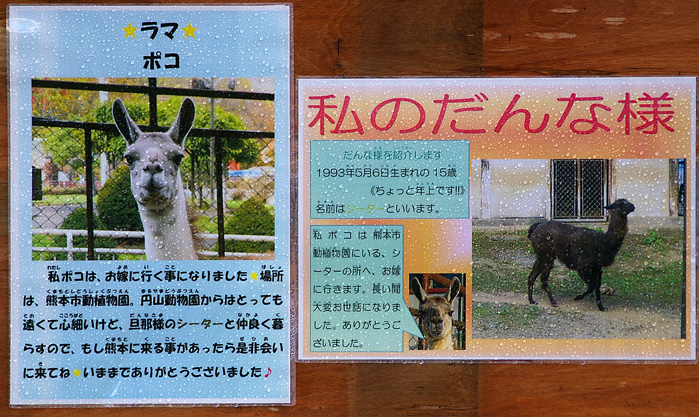 ★ラマ★
ポコ
私ポコは、お嫁に行く事になりました★場所
は、熊本市動植物園。円山動物園からはとっても
遠くて心細いけど、旦那様のシーターと仲良く暮
らすので、もし熊本に来る事があったら是非会い
に来てね★いままでありがとうございました♪
私のだんな様
だんな様を紹介します
1993年5月6日生まれの15歳
《ちょっと年上です!!》
名前はシーターといいます。
私ポコは熊本市
動植物園にいる、シ
ーターの所へ、お嫁
に行きます。長い間
大変お世話になりま
した。ありがとうご
ざいました。